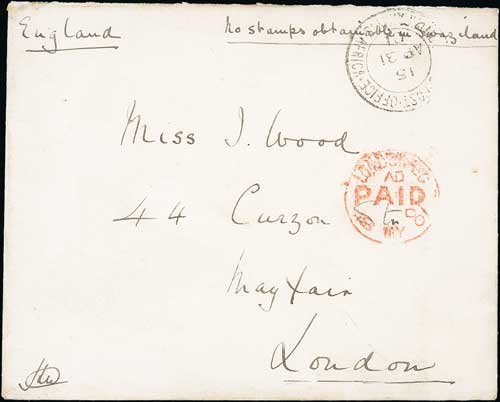 England No stamps obtainable in Swaziland
POST OFFICE
AFRICA
15
AP 31
01
Miss J. Wood
LONDON
AD
PAID
MY
44 Curzon St
Mayfair
London